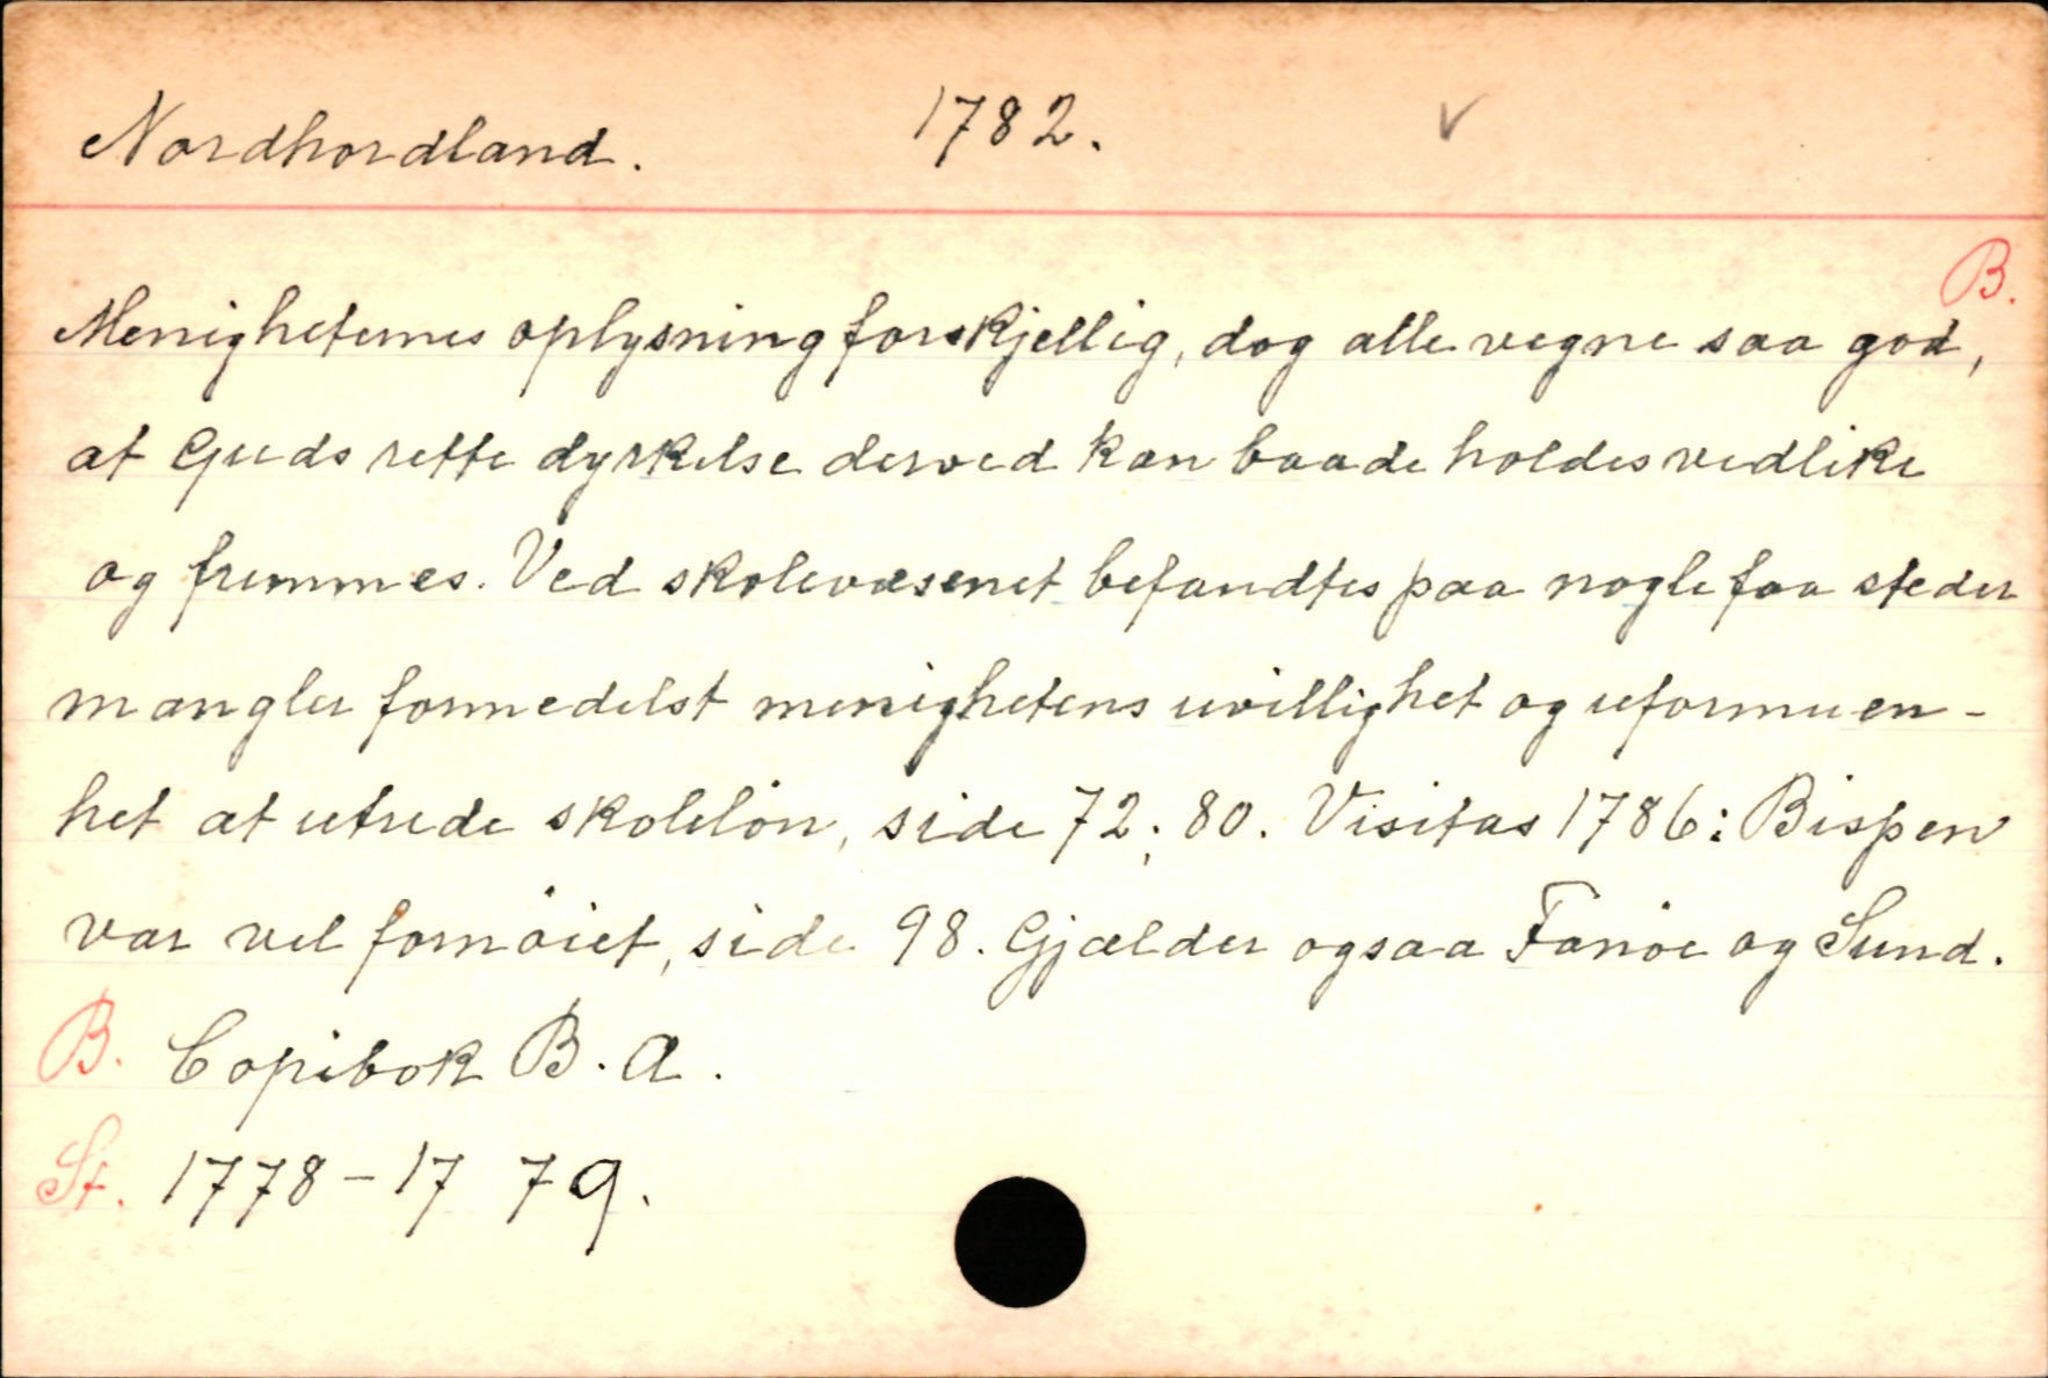 Nordhordland. 1782. v
B.
Menigheternes oplysning forskjellig, dog alle vegne saa god,
at Guds rette dyrkelse derved kan baade holdes vedlike
og fremmes. Ved skolevæsenet befandtes paa nogle faa steder
mangler formedelst menighetens uvillighet og uformuen-
het at utrede skoleløn, side 72; 80. Visitas 1786: Bispen
var vel fornøiet, side 98. Gjælder ogsaa Fanøe og Sund.
B. Copibok B. A.
St. 1778-1779.